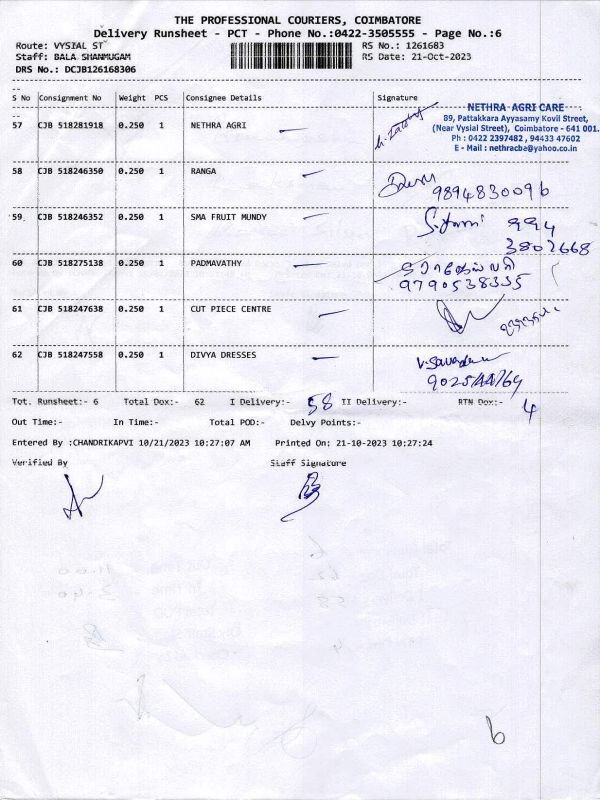 THE PROFESSIONAL COURIERS, COIMBATORE
Delivery Runsheet - PCT - Phone No.:0422-3505555 - Page No.:6
Route: VYSIAL ST
RS No.: 1261683
Staff: BALA SHANMUGAM
RS Date: 21-Oct-2023
DRS No.: DCJB126168306
S No Consignment No Weight PCS Consignee Details Signature
NETHRA AGRI CARE
89, Pattakkara Ayyasamy Kovil Street,
(Near Vysial Street), Coimbatore - 641 001.
Ph : 0422 2397482 , 94433 47602
E - Mail : nethracbe@yahoo.co.in
57 CJB 518281918 0.250 1 NETHRA AGRI
58 CJB 518246350 0.250 1 RANGA
9894830096
59 CJB 518246352 0.250 1 SMA FRUIT MUNDY
994
3802668
60 CJB 518275138 0.250 1 PADMAVATHY
9790538335
61 CJB 518247638 0.250 1 CUT PIECE CENTRE
62 CJB 518247558 0.250 1 DIVYA DRESSES
Tot. Runsheet:- 6 Total Dox:- 62 I Delivery:- 58 II Delivery:- RTN Dox:- 4
Out Time:- In Time:- Total POD:- Delvy Points:-
Entered By :CHANDRIKAPVI 10/21/2023 10:27:07 AM Printed On: 21-10-2023 10:27:24
Verified By Staff Signature
6